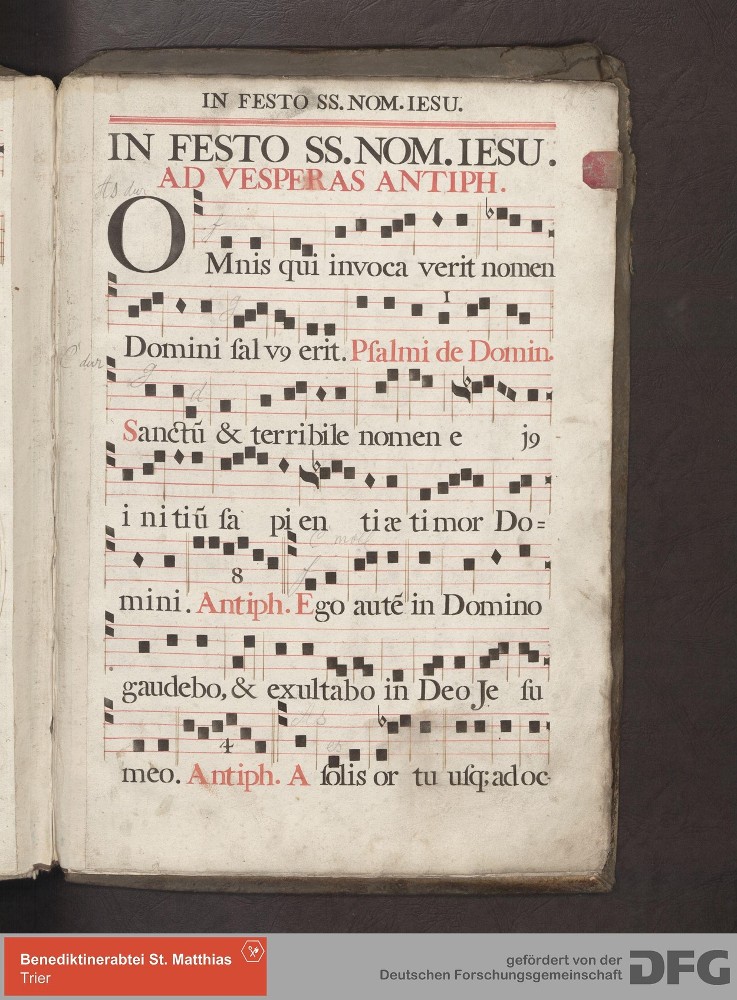 IN FESTO SS. NOM. IESU.
IN FESTO SS. NOM. IESU.
AD VESPERAS ANTIPH.
As dur
OMnis qui invoca verit nomen
g
1
Domini ſal v9 erit. Pſalmi de Domin.
C dur
g d
Sanctũ & terribile nomen e j9
i ni tiũ ſa pi en ti æ ti mor Do=
C moll
8
mini. Antiph. Ego autẽ in Domino
gaudebo, & exultabo in Deo Je ſu
As
es
4
meo. Antiph. A ſolis or tu uſq; ad oc-
Benediktinerabtei St. Matthias
Trier
gefördert von der
Deutschen Forschungsgemeinschaft
DFG